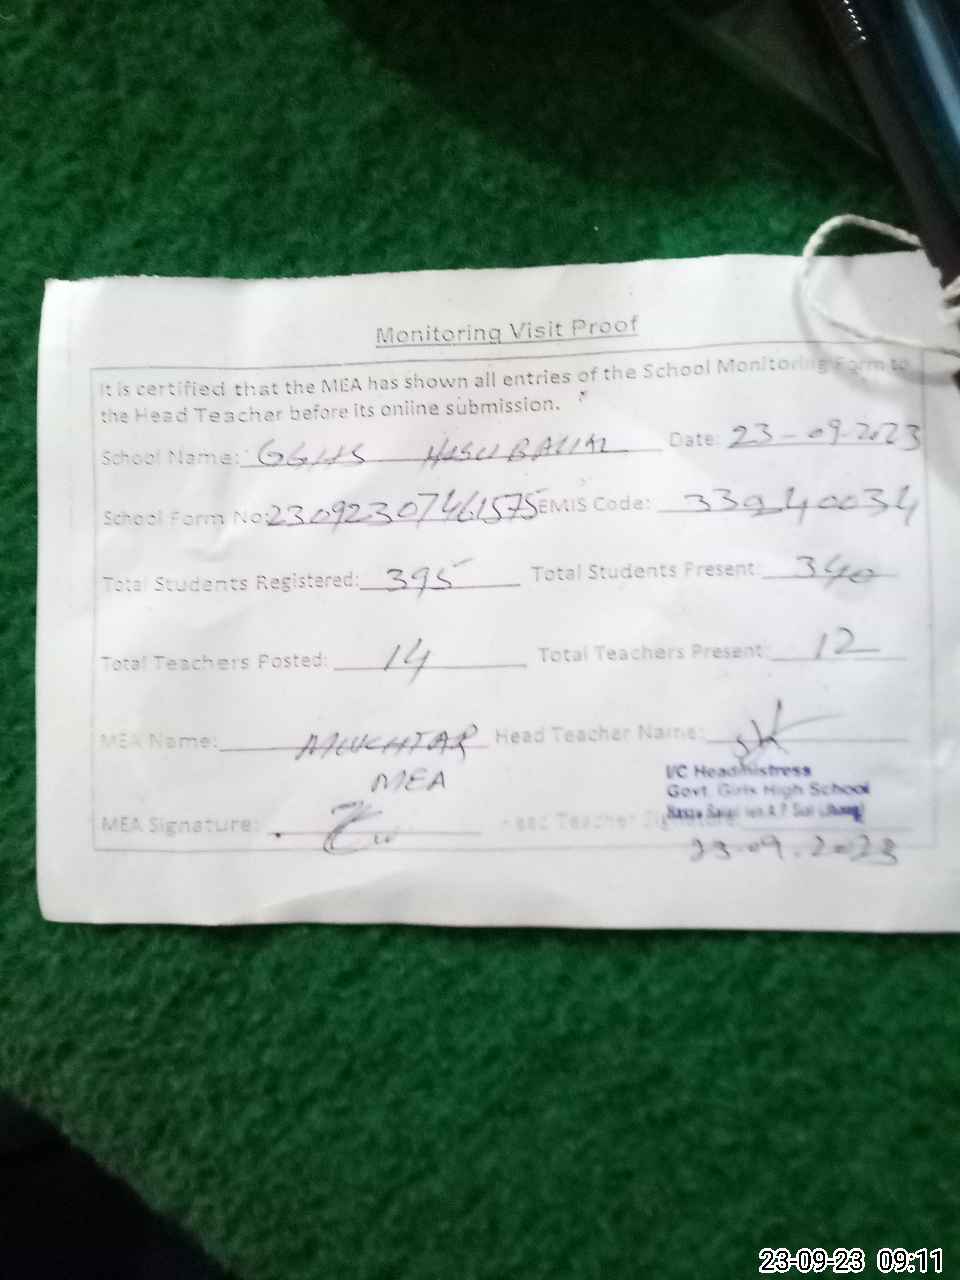 Monitoring Visit Proof
It is certified that the MEA has shown all entries of the School Monitoring Form to
the Head Teacher before its online submission.
School Name: GGHS HASU BALIAL Date: 23-09-2023
School Form No: 23092307461575 EMIS Code: 33240034
Total Students Registered: 395 Total Students Present: 340
Total Teachers Posted: 14 Total Teachers Present: 12
MEA Name: MUKHTAR Head Teacher Name:
MEA
I/C Headmistress
Govt. Girls High School
MEA Signature: Head Teacher Signature:
23-09-2023
23-09-23 09:11